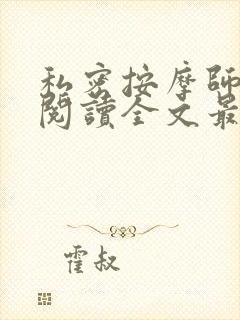 私密按摩師
閱讀全文最
霍叔